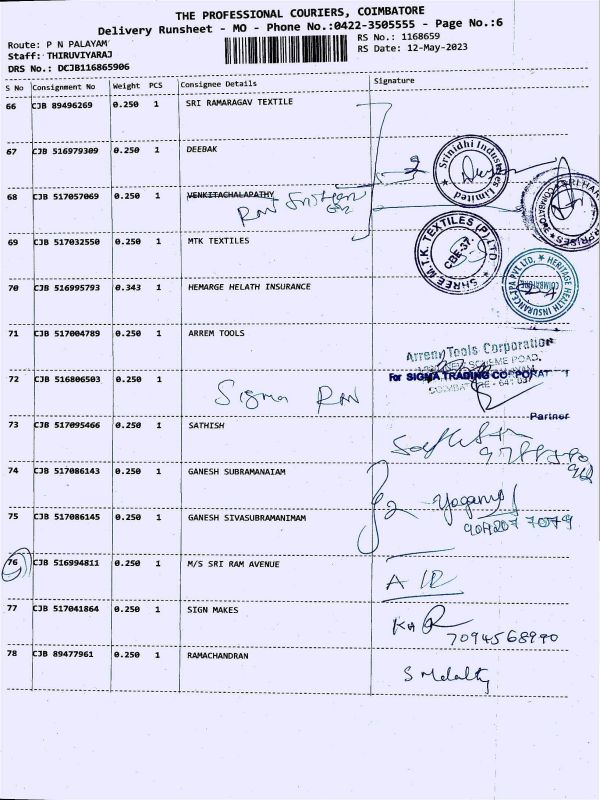 THE PROFESSIONAL COURIERS, COIMBATORE
Delivery Runsheet - MO - Phone No.:0422-3505555 - Page No.:6
Route: P N PALAYAM
RS No.: 1168659
Staff: THIRUVIYARAJ
RS Date: 12-May-2023
DRS No.: DCJB116865906
S No Consignment No Weight PCS Consignee Details Signature
66 CJB 89496269 0.250 1 SRI RAMARAGAV TEXTILE
67 CJB 516979309 0.250 1 DEEBAK
Srinidhi Industries Limited
68 CJB 517057069 0.250 1 VENKITACHALAPATHY
69 CJB 517032550 0.250 1 MTK TEXTILES
SHREE M.T.K. TEXTILES (P) LTD
CBE-37.
70 CJB 516995793 0.343 1 HEMARGE HELATH INSURANCE
HERITAGE HEALTH INSURANCE TPA PVT LTD.
COIMBATORE
71 CJB 517004789 0.250 1 ARREM TOOLS
Arrem Tools Corporation
72 CJB 516806503 0.250 1
For SIGMA TRADING CORPORATION
COIMBATORE - 641 037
Sigma
Partner
73 CJB 517095466 0.250 1 SATHISH
74 CJB 517086143 0.250 1 GANESH SUBRAMANAIAM
2
75 CJB 517086145 0.250 1 GANESH SIVASUBRAMANIMAM
76 CJB 516994811 0.250 1 M/S SRI RAM AVENUE
77 CJB 517041864 0.250 1 SIGN MAKES
7094568990
78 CJB 89477961 0.250 1 RAMACHANDRAN